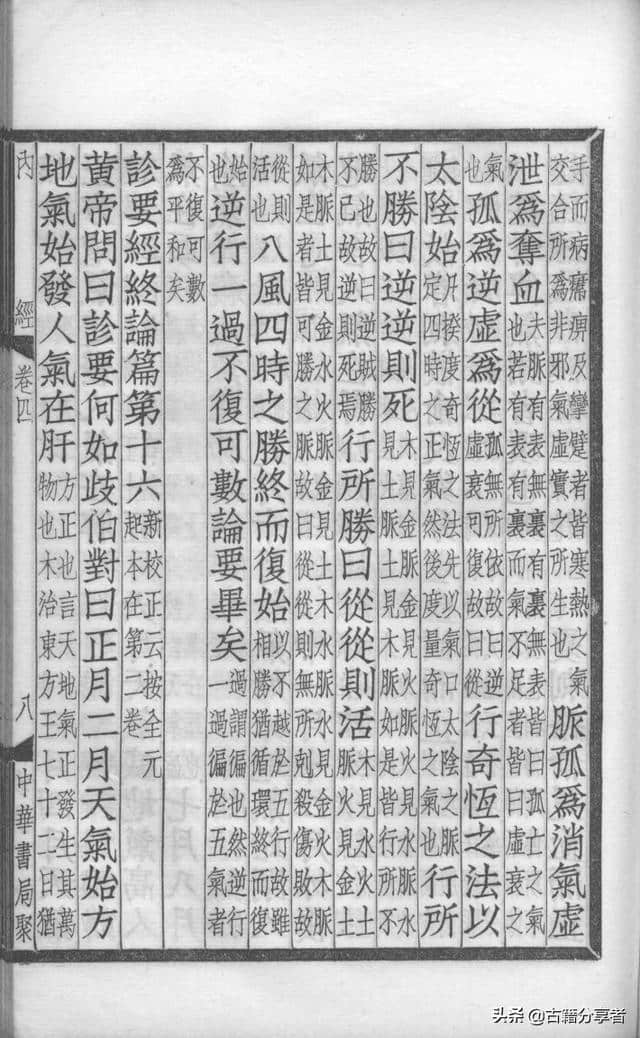 手而病癰痹及攣躄者皆寒熱之氣交合所爲非邪氣虛實之所生也脈孤爲消氣虛
泄爲奪血夫脈有表無裏有裏無表皆曰孤亡之氣也若有表有裏而氣不足者皆曰虛衰之
氣也孤爲逆虛爲從孤無所依故曰逆虛衰可復故曰從行奇恆之法以
太陰始凡揆度奇恆之法先以氣口太陰之脈定四時之正氣然後度量奇恆之氣也行所
不勝曰逆逆則死木見金脈金見火脈火見水脈水見土脈土見木脈如是皆行所不
勝也故曰逆賊勝不已故逆則死焉行所勝曰從從則活木見水火土脈火見金土
木脈土見金水火脈金見土木水脈水見金火木脈如是者皆可勝之脈故曰從從則無所剋殺傷敗故
從則活也八風四時之勝終而復始以不越於五行故雖相勝猶循環終而復
始也逆行一過不復可數論要畢矣過謂徧也然逆行一過徧於五氣者
不復可數爲平和矣
診要經終論篇第十六新校正云按全元起本在第二卷
黃帝問曰診要何如歧伯對曰正月二月天氣始方
地氣始發人氣在肝方正也言天地氣正發生其萬物也木治東方王七十二日猶
內經 卷四 八 中華書局聚
头条 @古籍分享者